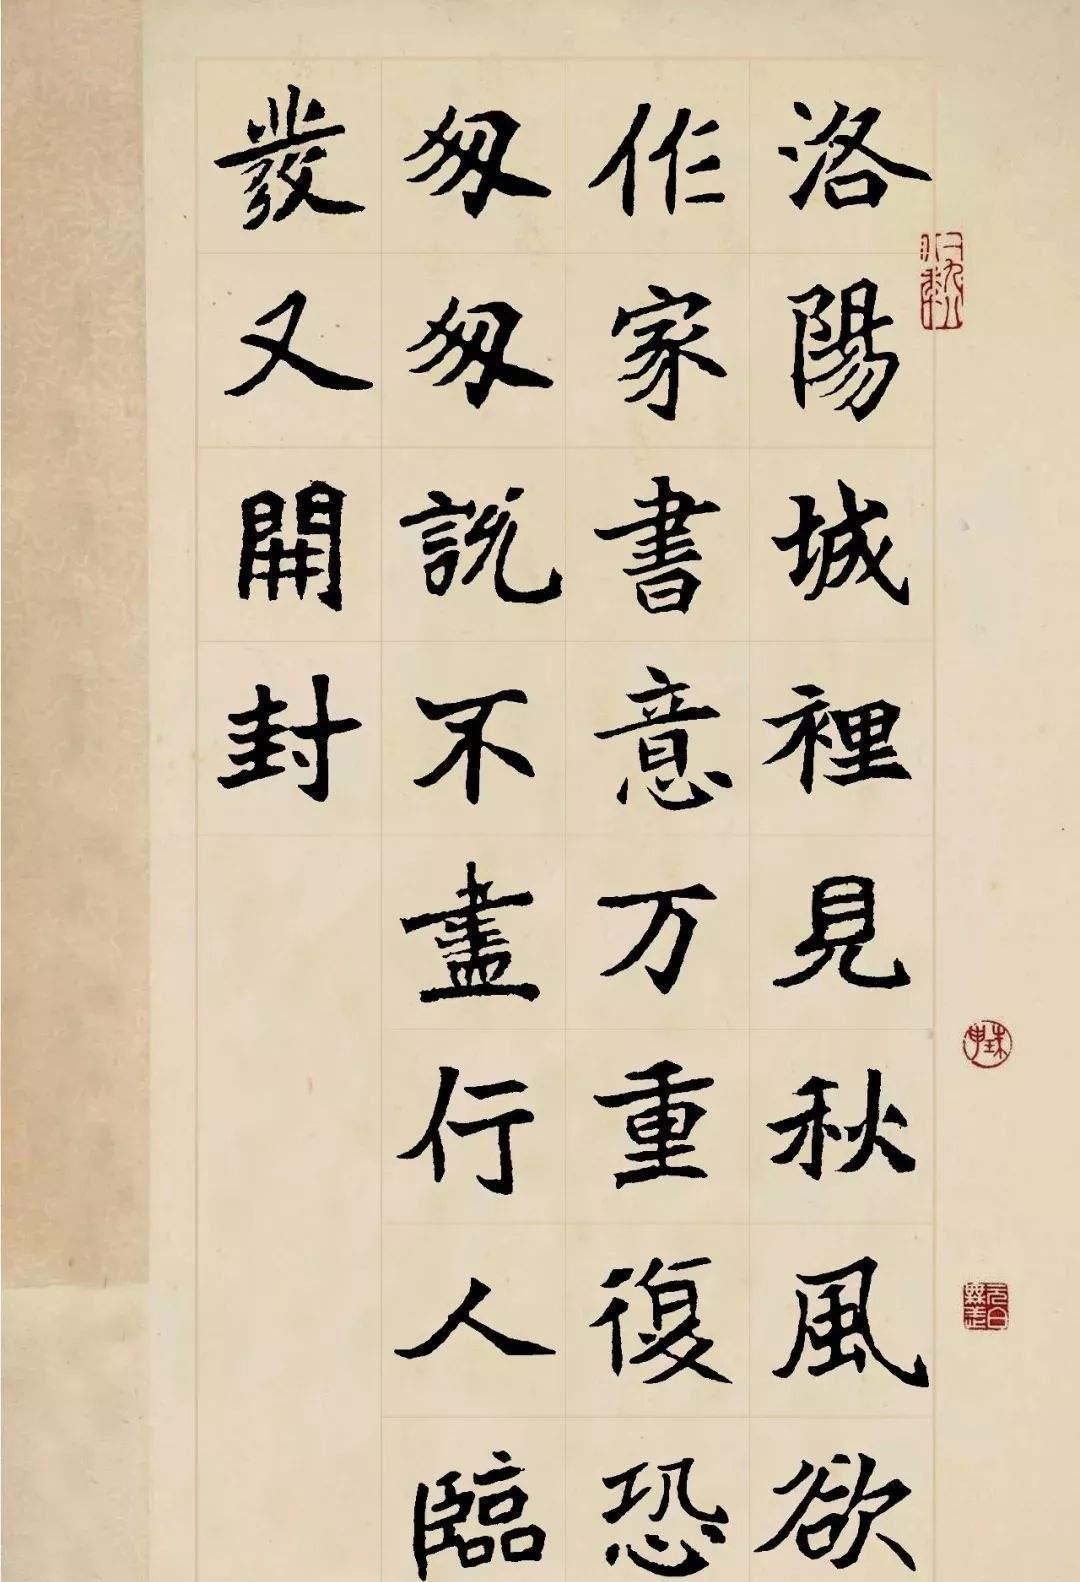 洛陽城裡見秋風欲
作家書意万重復恐
匆匆説不盡行人臨
發又開封